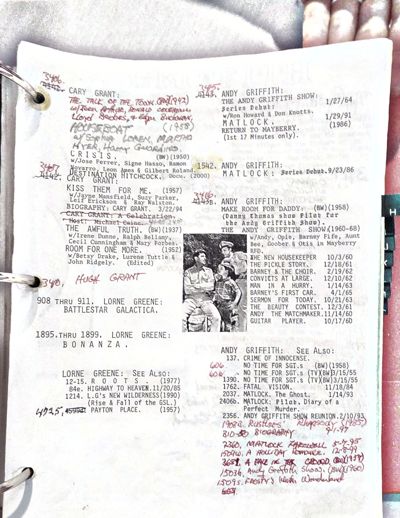 3406.
CARY GRANT:
THE TALK OF THE TOWN (BW)(1942)
HOUSEBOAT (1958)
W/SOPHIA LOREN, MARTHA
HYER,
CRISIS. (BW)(1950)
w/Jose Ferrer, Signe Hasso, Ramon
Novarro. Leon Ames & Gilbert Roland.
3407.
DESTINATION HITCHCOCK. Docu. (2000)
CARY GRANT:
KISS THEM FOR ME. (1957)
w/Jayne Mansfield, Suzy Parker,
Leif Erickson & Ray Walston.
BIOGRAPHY: CARY GRANT. 3/22/94
CARY GRANT: A Celebration.
Host: Michael Caine.
THE AWFUL TRUTH. (BW)(1937)
w/Irene Dunne, Ralph Bellamy,
Cecil Cunningham & Mary Forbes.
ROOM FOR ONE MORE. (1952)
w/Betsy Drake, Lurene Tuttle &
John Ridgely. (Edited)
HUGH GRANT
908 THRU 911. LORNE GREENE:
BATTLESTAR GALACTICA.
1895.THRU 1899. LORNE GREENE:
BONANZA.
LORNE GREENE: SEE ALSO:
12-15. ROOTS. (1977)
84e. HIGHWAY TO HEAVEN.11/20/85
1214. L.G's NEW WILDERNESS(1990)
(Rise & Fall of the GSL.)
4725. PAYTON PLACE. (1957)
3405.
ANDY GRIFFITH:
THE ANDY GRIFFITH SHOW:
Series Debut: 1/27/64
w/Ron Howard & Don Knotts.
MATLOCK. 1/29/91
RETURN TO MAYBERRY. (1986)
(1st 17 Minutes only).
1542. ANDY GRIFFITH:
MATLOCK: Series Debut.9/23/86
ANDY GRIFFITH:
MAKE ROOM FOR DADDY: (BW)(1958)
(Danny Thomas show Pilot for
the Andy Griffith Show).
THE ANDY GRIFFITH SHOW(1960-68)
w/Andy, Opie, Barney Fife, Aunt
Bee, Goober & Otis in Mayberry
RFD.
THE NEW HOUSEKEEPER 10/3/60
THE PICKLE STORY. 12/18/61
BARNEY & THE CHOIR. 2/19/62
CONVICTS AT LARGE. 12/10/62
MAN IN A HURRY. 1/14/63
BARNEY'S FIRST CAR. 4/1/65
SERMON FOR TODAY. 10/21/63
THE BEAUTY CONTEST. 12/3/61
ANDY THE MATCHMAKER.11/14/60
GUITAR PLAYER. 10/17/60
ANDY GRIFFITH: SEE ALSO:
137. CRIME OF INNOCENCE.
606 NO TIME FOR SGT.s (BW)(1958)
606 NO TIME FOR SGT.s (TV)(BW)3/15/55
1390. NO TIME FOR SGT.s (TV)(BW)3/15/55
1762. FATAL VISION. 11/18/84
2037. MATLOCK. The Ghost. 1/14/93
2406b. MATLOCK: Pilot. Diary of a
Perfect Murder.
2356. ANDY GRIFFITH SHOW REUNION.2/10/93
1988. RUSTLERS' RHAPSODY (1985)
BIOGRAPHY
2360. MATLOCK
15090. A HOLIDAY ROMANCE. 12-8-99
3651. A FACE IN THE CROWD (BW)(1957)
15036. ANDY GRIFFITH SHOW. (BW)(1960)